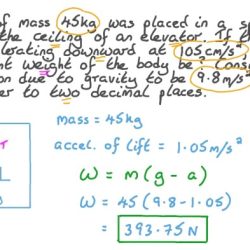 of mass 45kg was placed in a
the ceiling of an elevator. If
lerating downward at 105cm/s²
nt weight of the body be? Consi
on due to gravity to be 9.8m/s²
er to two decimal places.
mass = 45kg
accel. of lift = 1.05m/s²
ω = m(g-a)
ω = 45(9.8-1.05)
= 393.75N